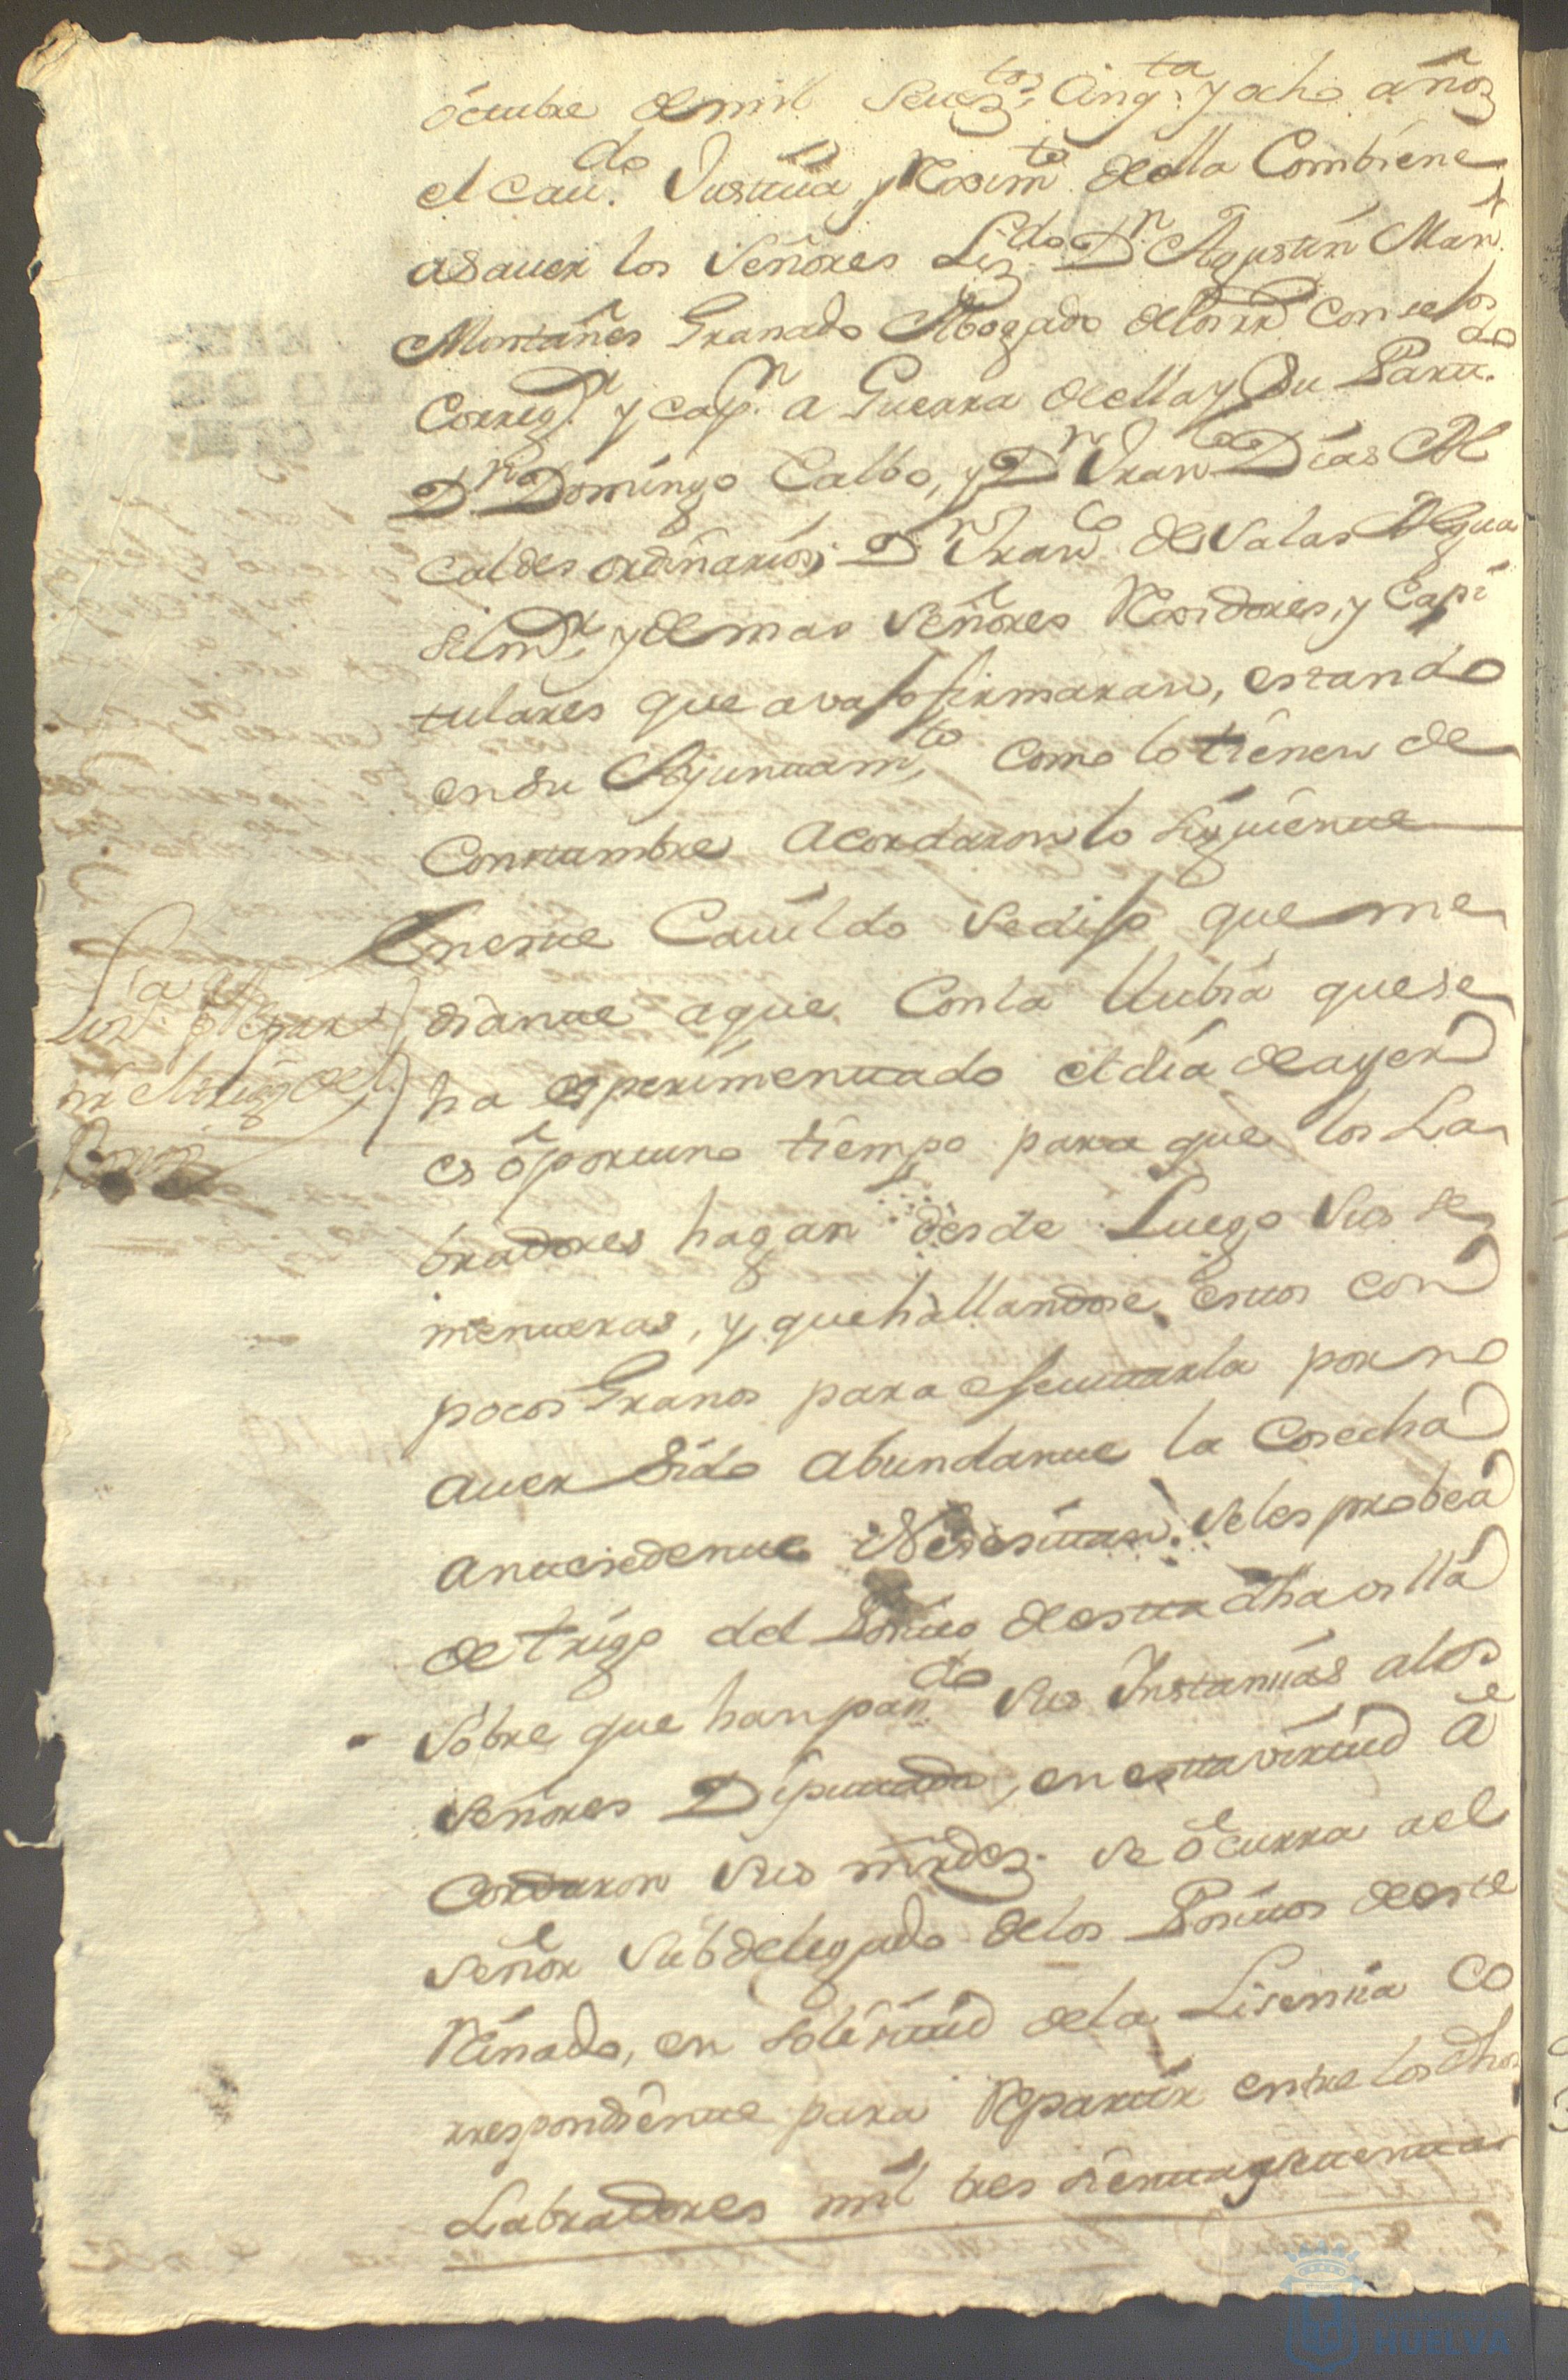 octubre de mil setez.tos Cinq.ta y ocho años
el cau.do Justicia y Rexim.to de ella Combiene
a saver los Señores Liz.do D.n Agustin Marn.
Montañes Granado Abogado de los rr.s Consejos
Correg.r y cap.n a Guerra de ella y Su Partt.do
D.n Domingo Calbo, y D.n Fran.co Días Al
caldes ordinarios; D.n Fran.co de Salas Algua
sil m.r, y demas Señores Rexidores, y Capi
tulares que avajo firmaran, estando
en su Ayuntam.to, como lo tienen de
Constumbre acordaron lo siguiente
En este Cavildo se dijo que me
diante a que Con la llubia que se
ha esperimentado el día de ayer
es oportuno tiempo para que los La
bradores hagan desde Luego sus se
menteras, y que hallandose estos con
pocos Granos para efectuarla por no
aver sido abundante la Cosecha
antecedente Nesesitan se les probea
de trigo del Posito de esta dha villa
sobre que han pas.do sus Instancias a los
señores Diputados, en esta virtud a
cordaron sus mrdez. se ocurra a el
señor Subdelegado de los Positos de este
Reinado, en solisitud de la Lisencia Co
rrespondiente para Repartir entre los dhos
Labradores mil tres sientas setenta
del
HUELVA